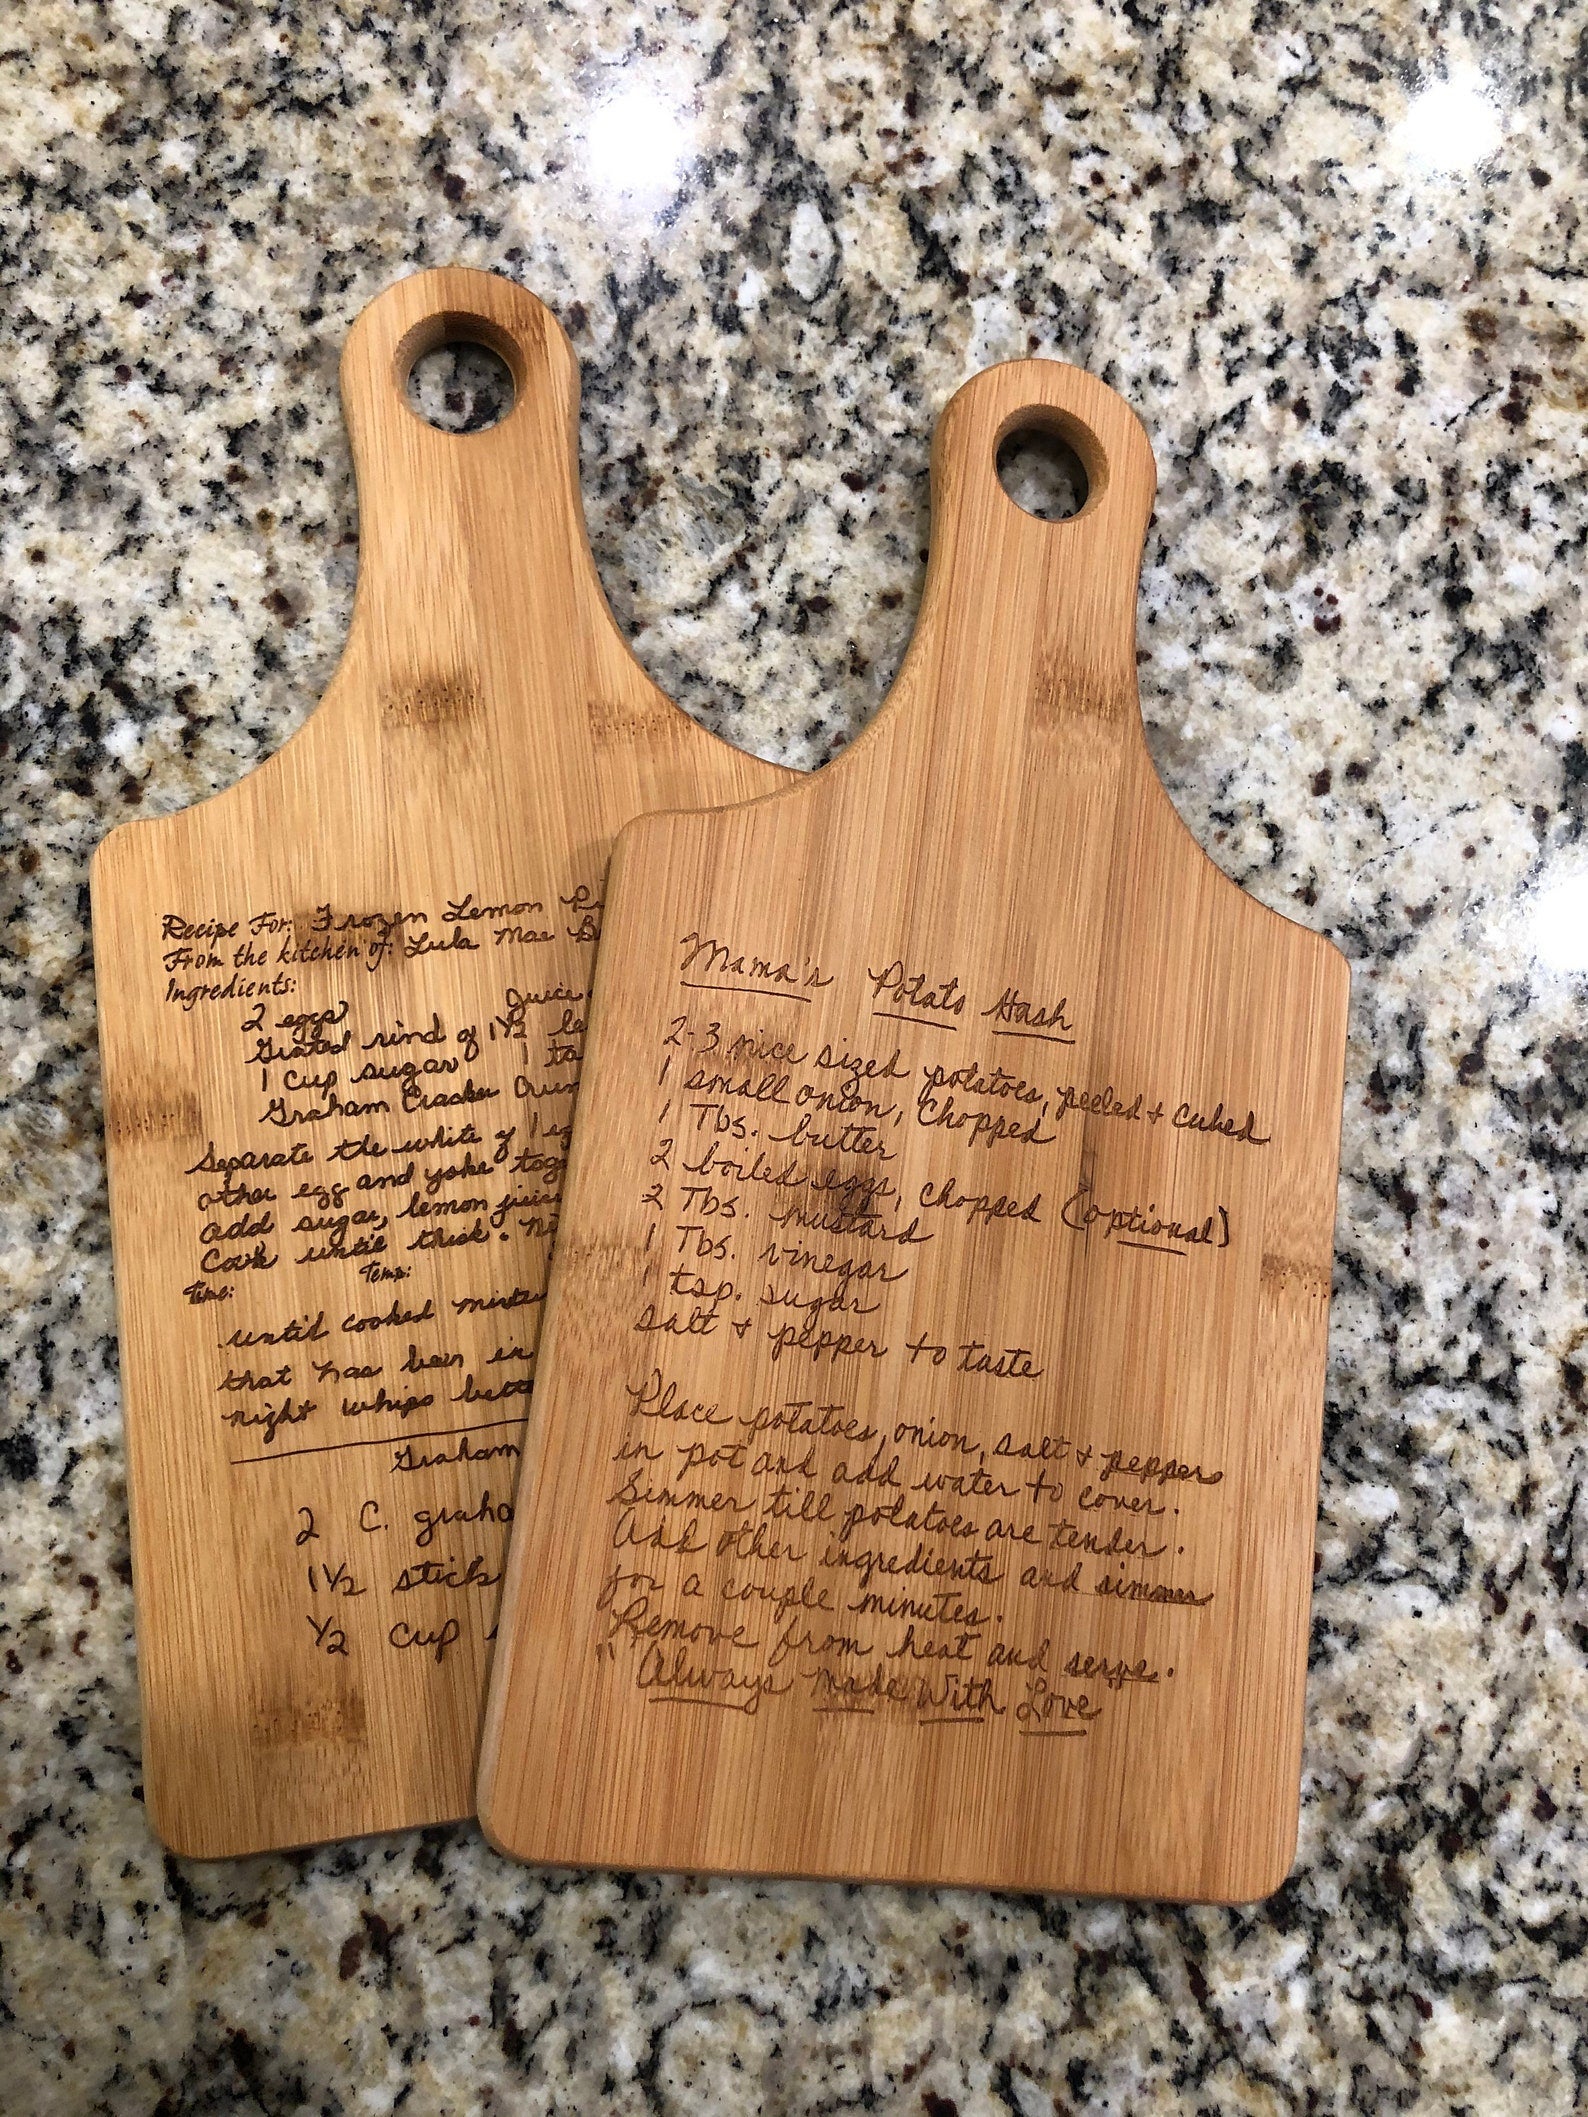 Recipe For: Frozen Lemon
From the kitchen of: Lula Mae
Ingredients:
2 eggs Juice
Grated rind of 1½
1 cup sugar 1
Graham Cracker
Separate the white of 1
other egg and yoke
add sugar, lemon juice
Cook until thick.
Time: Temp:
until cooked
that has been in
night whips
Graham
2 C.
1½ stick
½ cup
Mama's Potato Hash
2-3 nice sized potatoes, peeled + cubed
1 small onion, chopped
1 Tbs. butter
2 boiled eggs, chopped (optional)
2 Tbs. mustard
1 Tbs. vinegar
1 tsp. sugar
salt + pepper to taste
Place potatoes, onion, salt + pepper
in pot and add water to cover.
Simmer till potatoes are tender.
Add other ingredients and simmer
for a couple minutes.
Remove from heat and serve.
"Always Made With Love"